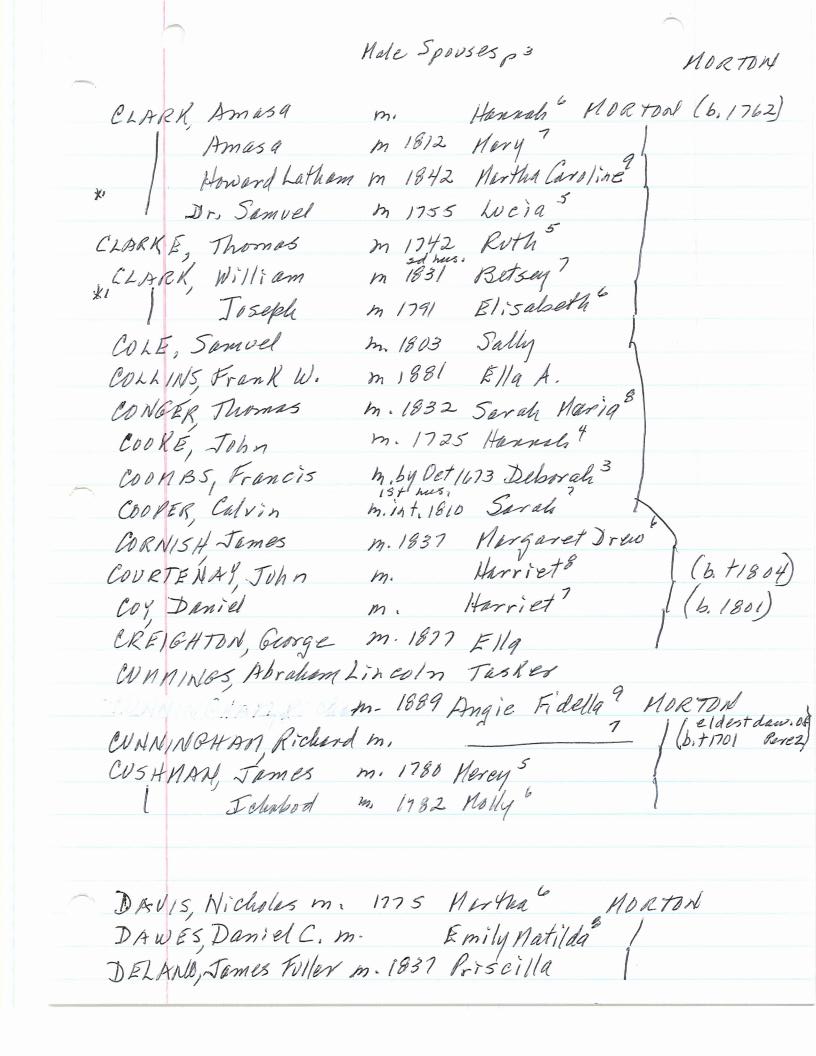 Male Spouses p 3
MORTON
CLARK, Amasa m. Hannah⁶ MORTON (b. 1762)
Amasa m 1812 Mary⁷
Howard Latham m 1842 Martha Caroline⁹
* Dr. Samuel m 1755 Lucia⁵
CLARKE, Thomas m 1742 Ruth⁵
2d hus.
* CLARK, William m 1831 Betsey⁷
Joseph m 1791 Elisabeth⁶
COLE, Samuel m. 1803 Sally
COLLINS, Frank W. m 1881 Ella A.
CONGER, Thomas m. 1832 Sarah Maria⁸
COOKE, John m. 1725 Hannah⁴
COOMBS, Francis m. by Oct 1673 Deborah³
1st hus.
COOPER, Calvin m. int. 1810 Sarah⁷
CORNISH, James m. 1837 Margaret Drew⁶
COURTENAY, John m. Harriet⁸ (b. +1804)
COY, Daniel m. Harriet⁷ (b. 1801)
CREIGHTON, George m. 1877 Ella
CUMMINGS, Abraham Lincoln Tasker
m. 1889 Angie Fidella⁹ MORTON
CUNNINGHAM, Richard m. ⁷ (eldest daw. of
b. +1701 Perez)
CUSHMAN, James m. 1780 Mercy⁵
Ichabod m. 1782 Molly⁶
DAVIS, Nicholas m. 1775 Martha⁶ MORTON
DAWES, Daniel C. m. Emily Matilda⁸
DELANO, James Fuller m. 1837 Priscilla